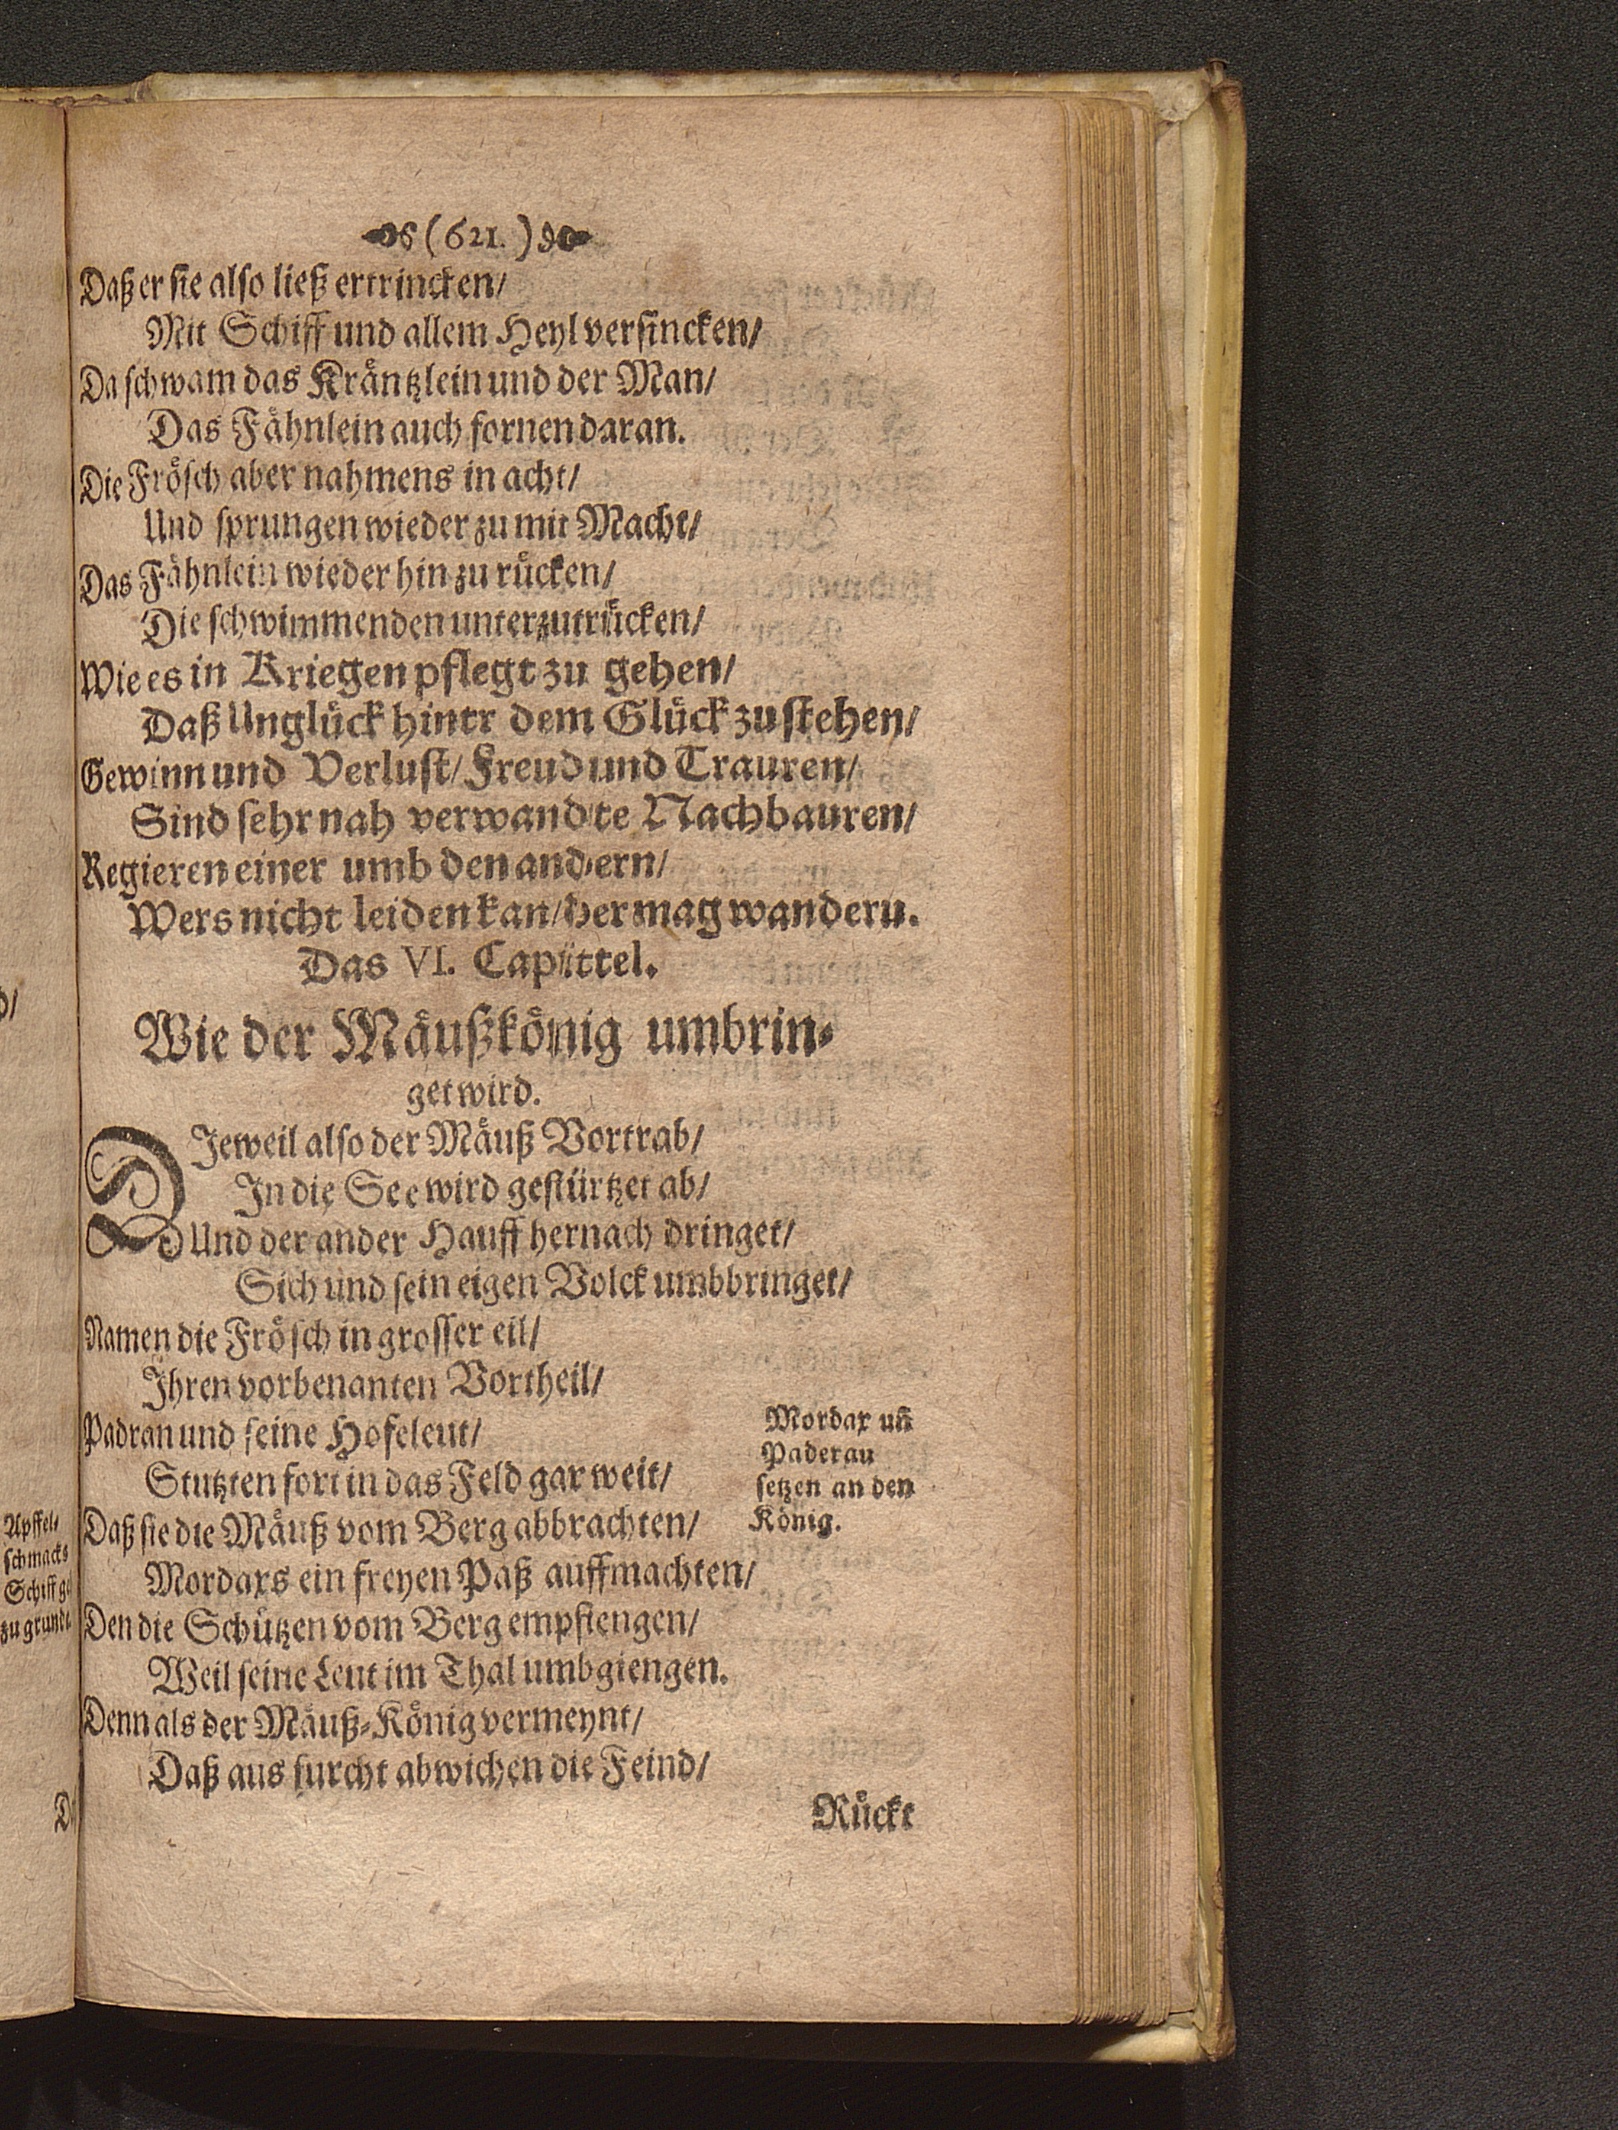 (621.)
Daß er sie also ließ ertrincken/
Mit Schiff und allem Heyl versincken/
Da schwam das Kräntzlein und der Man/
Das Fähnlein auch fornen daran.
Die Frösch aber nahmens in acht/
Und sprungen wieder zu mit Macht/
Das Fähnlein wieder hin zu rücken/
Die schwimmenden unterzutrücken/
Wie es in Kriegen pflegt zu gehen/
Daß Unglück hintr dem Glück zu stehen/
Gewinn und Verlust/ Freud und Trauren/
Sind sehr nah verwandte Nachbauren/
Regieren einer umb den andern/
Wers nicht leiden kan/ der mag wandern.
Das VI. Capittel.
Wie der Mäußkönig umbrin-
get wird.
DJeweil also der Mäuß Vortrab/
In die See wird gestürtzet ab/
Und der ander Hauff hernach dringet/
Sich und sein eigen Volck umbbringet/
Namen die Frösch in grosser eil/
Ihren vorbenanten Vortheil/
Padran und seine Hofeleut/
Stutzten fort in das Feld gar weit/
Daß sie die Mäuß vom Berg abbrachten/
Mordaxs ein freyen Paß auffmachten/
Den die Schützen vom Berg empfiengen/
Weil seine Leut im Thal umbgiengen.
Denn als der Mäuß-König vermeynt/
Daß aus furcht abwichen die Feind/
Mordax uñ
Paderau
setzen an den
König.
Rückt
Apffel-
schmacks
Schiff
zu grunde